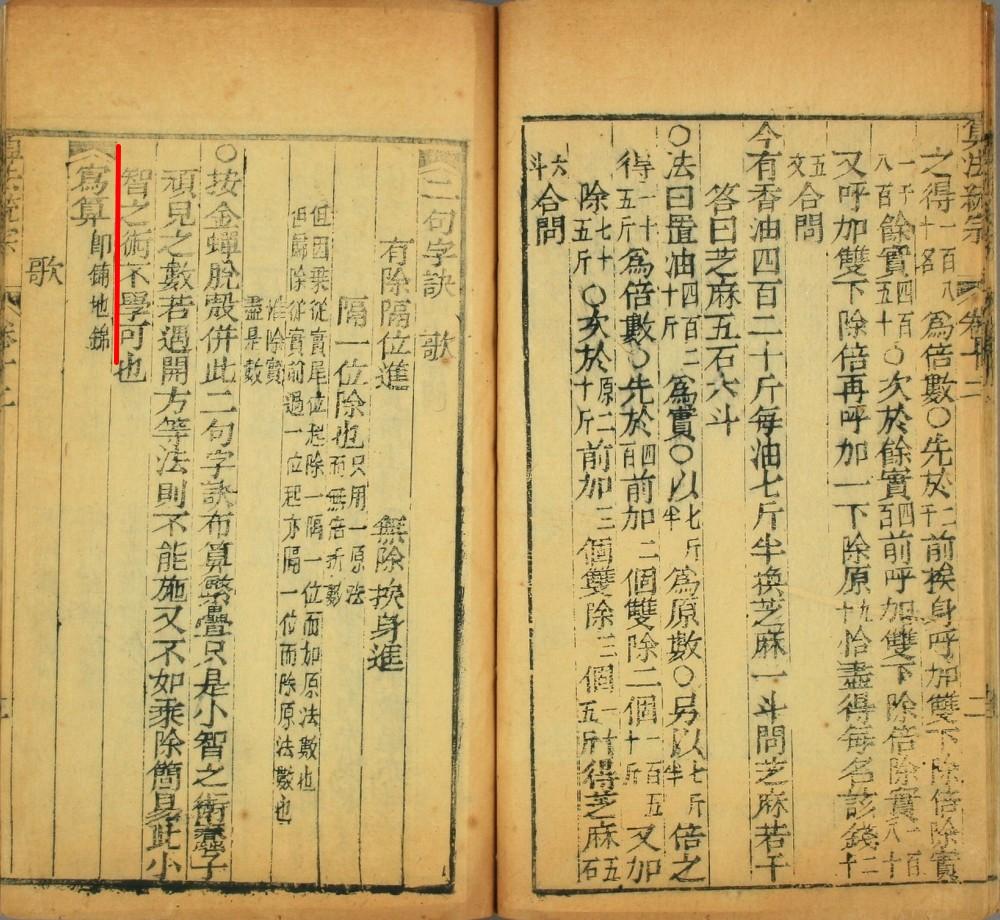 之得一百八十名為倍數○先於二千前挨身呼加雙下除倍除實
一千八百餘實四百五十○次於餘實四百前呼加雙下除倍除實一百八十
又呼加雙下除倍再呼加一下除原九十恰盡得每名該錢二十
五文合問
今有香油四百二十斤每油七斤半換芝麻一斗問芝麻若干
答曰芝麻五石六斗
○法曰置油四百二十斤為實○以七斤半為原數○另以七斤半倍之
得一十五斤為倍數○先於四百前加二個雙除二個一百五十斤又加
除七十五斤○次於原二十斤前加三個雙除三個一十五斤得芝麻五石
六斗合問
二句字訣 歌
有除隔位進 無除挨身進
隔一位除也只用一原法而無倍折數
但因乘從實尾位起除一隔一位而加原法數也
但歸除從實前過一位起亦隔一位而除原法數也
准除實盡是數
○按金蟬脫殼併此二句字訣布算繁疊只是小智之術蠢子
頑見之數若遇開方等法則不能施又不如乘除簡易此小
智之術不學可也
寫算即鋪地錦
歌